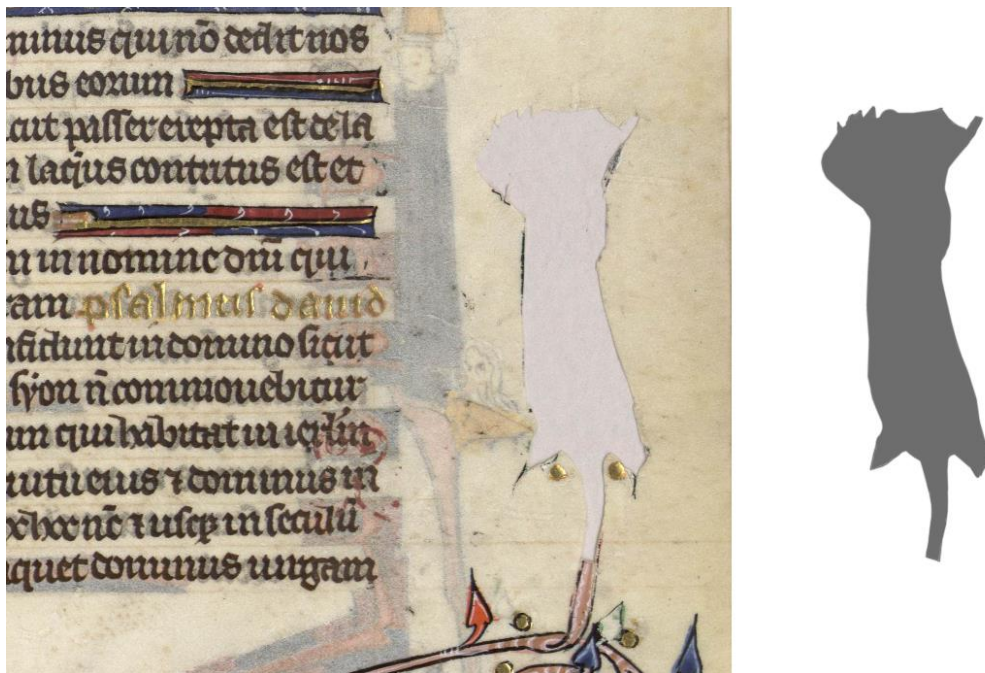 minus qui nō dedit nos
bus eorum
cut passer erepta est de la
laq̄us contritus est et
us
in nomine dn̄i qui
ram psalmus dauid
fidunt in domino sicut
syon n̄ commouebitur
um qui habitat in ierlm̄
uitu eius ⁊ dominus in
nc̄ ⁊ usq̨ in seculū
quet dominus uirgam